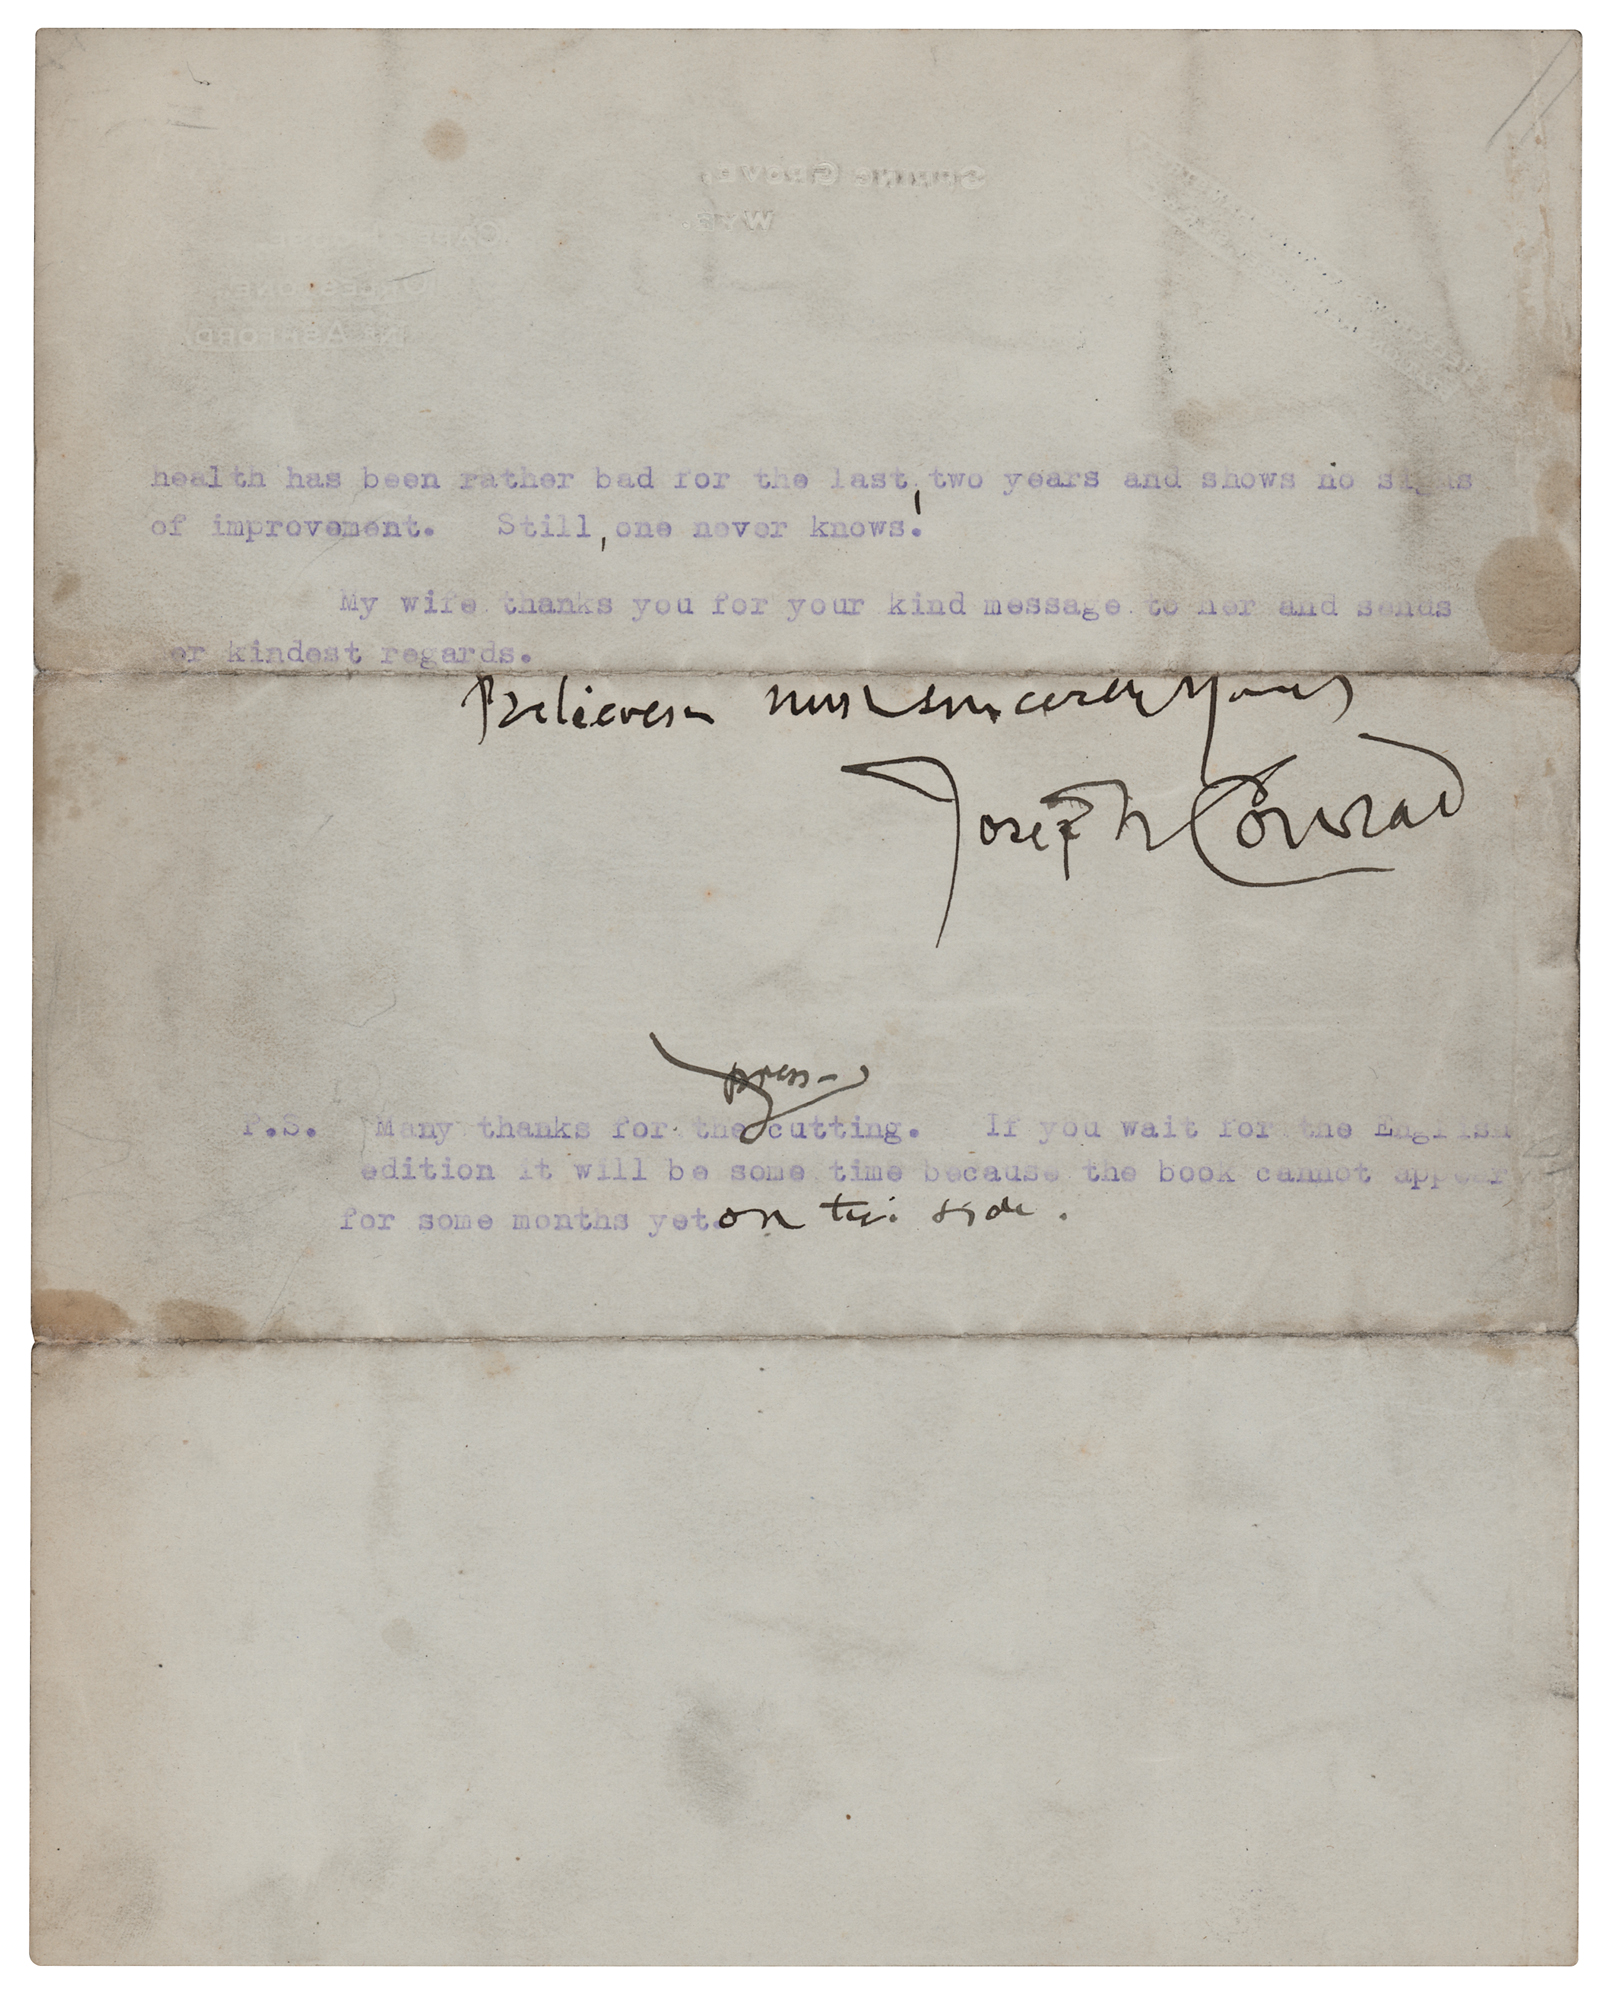 Spring Grove,
Wye.
Capel House,
Orlestone,
Nr Ashford
health has been rather bad for the last, two years and shows no signs
of improvement. Still, one never knows.
My wife thanks you for your kind message to her and sends
er kindest regards.
Believe me most sincerely yours
Joseph Conrad
press-
P.S. Many thanks for the cutting. If you wait for the English
edition it will be some time because the book cannot appear
for some months yet. on this side.